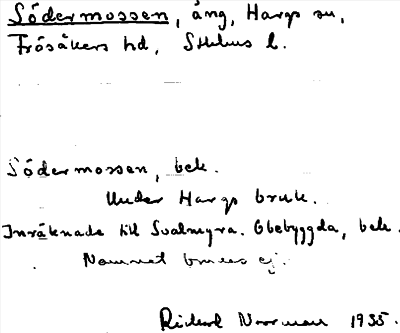 Södermossen, äng, Hargs sn,
Frösåkers hd, Sthlms l.
Södermossen, bek.
Under Hargs bruk.
Inräknade till Svalmyra. Obebyggda, bek.
Namnet brukas ej.
Rickard Norrman 1935.